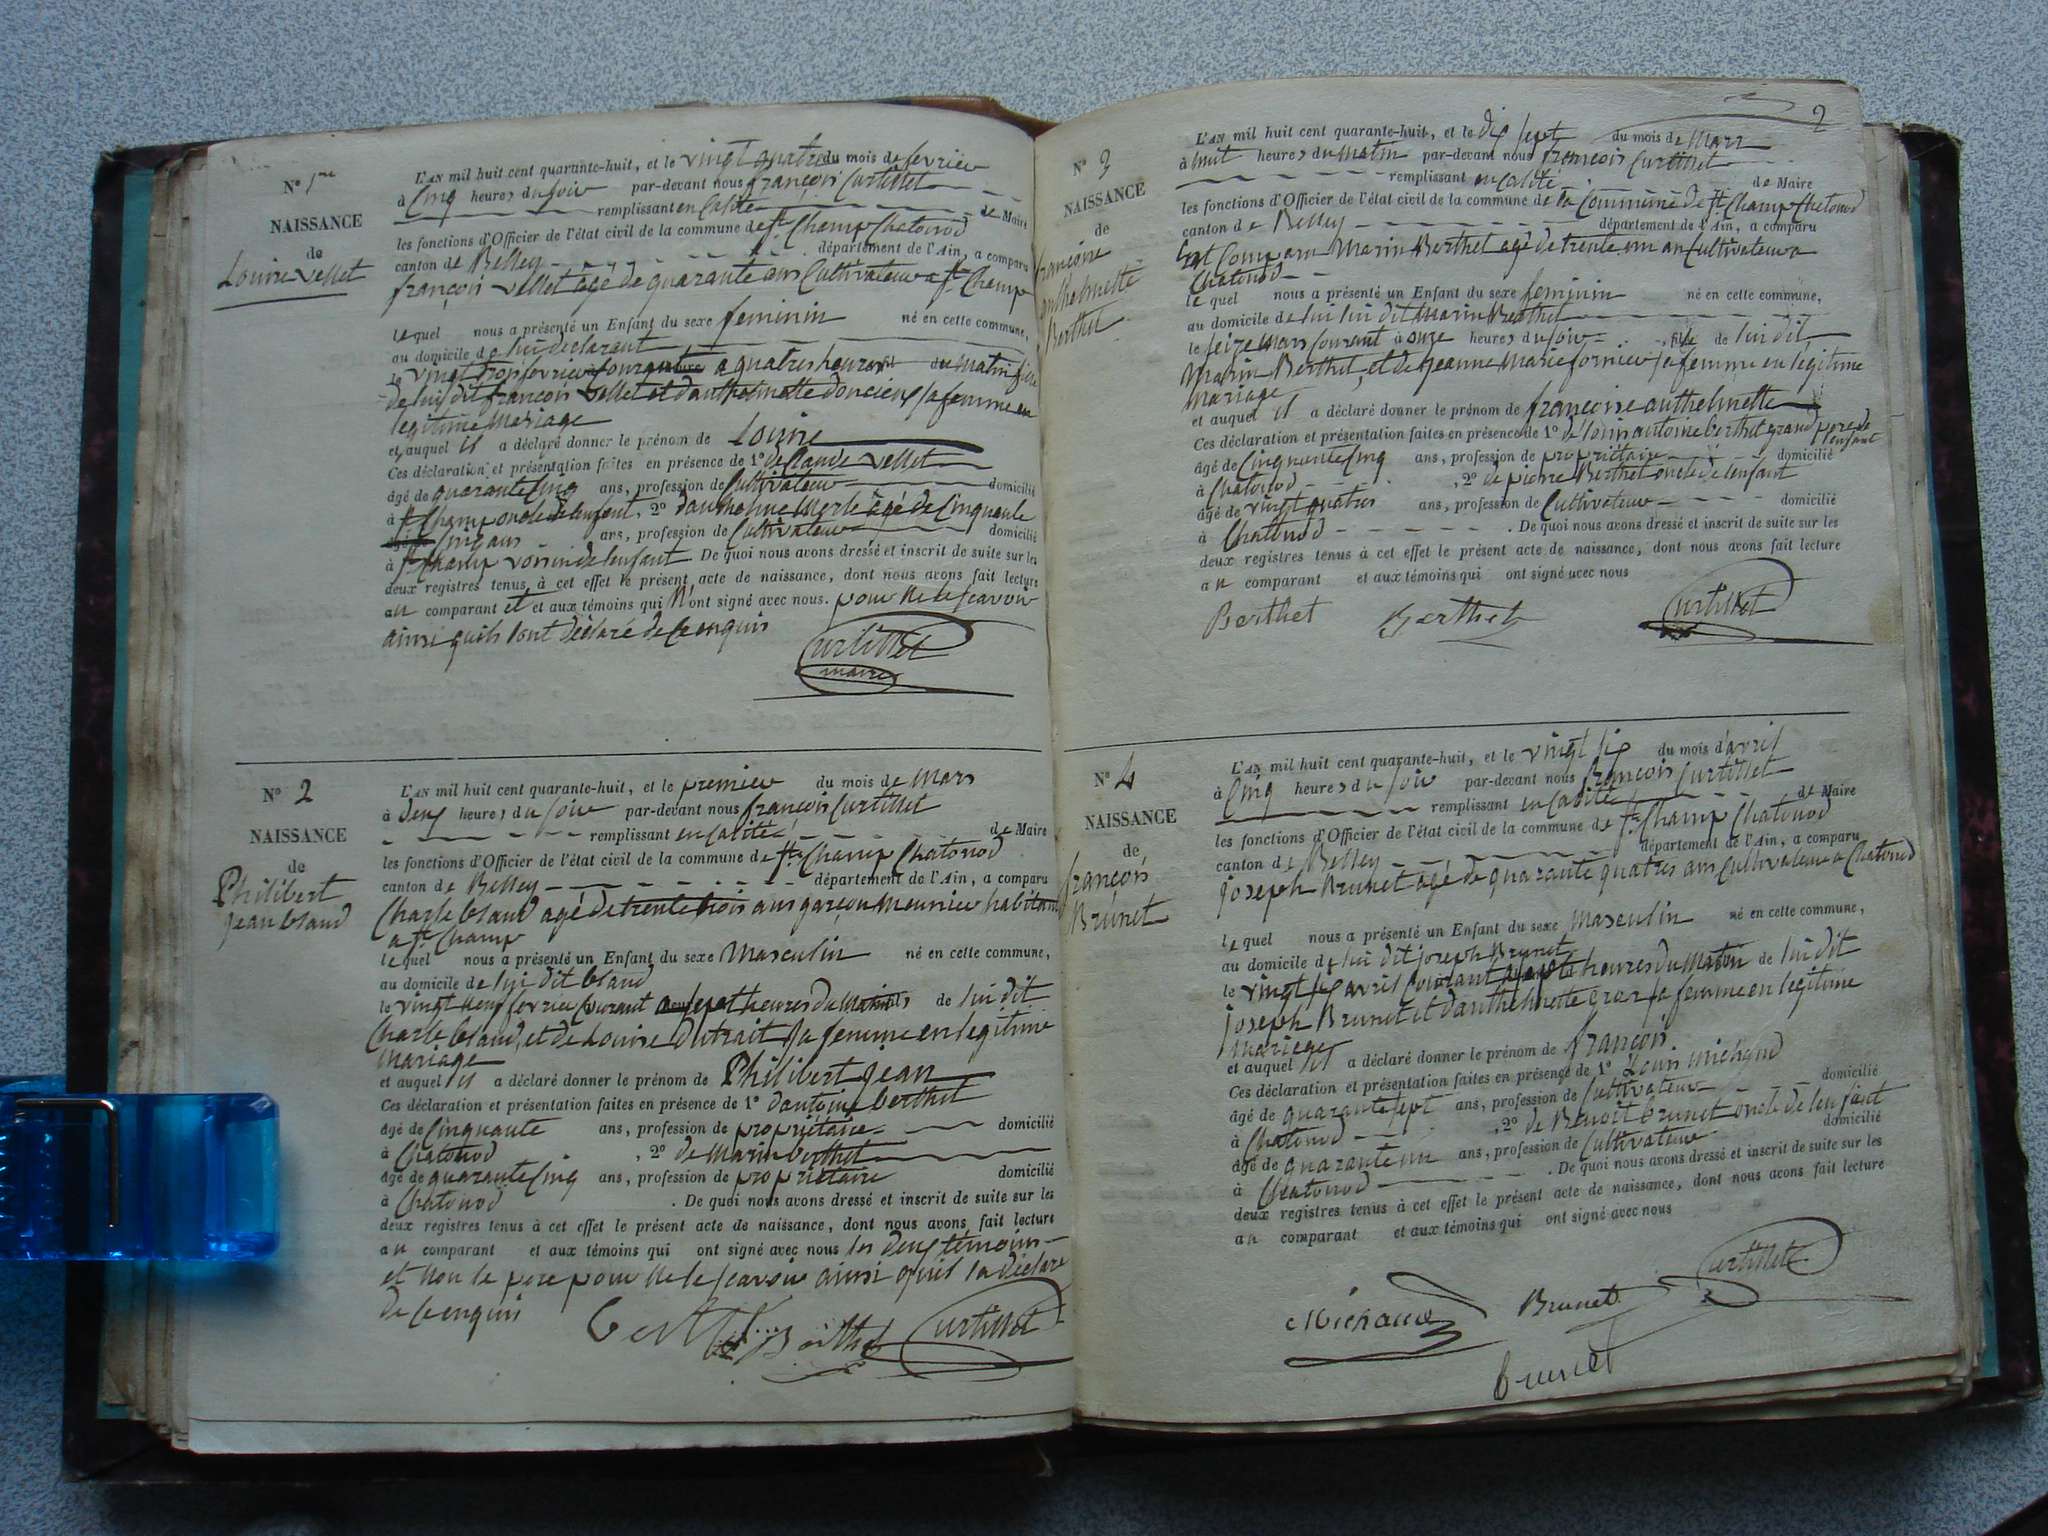 N° 1re
NAISSANCE
de
Louise Vellet
L'AN mil huit cent quarante-huit, et le vingt quatre du mois de fevrier
à Cinq heures du soir par-devant nous françois Curtillet
remplissant en calité de Maire
les fonctions d'Officier de l'état civil de la commune de St Champ Chatonod
canton de Belley département de l'Ain, a comparu
françois Vellet agé de quarante ans Cultivateur a St Champ
lequel nous a présenté un Enfant du sexe feminin né en cette commune,
au domicile de lui declarant
le vingt trois fevrier courant a quatres heures du matin fille
de lui dit françois Vellet et danthelmette doncieux sa femme en
legitime mariage
et auquel il a déclaré donner le prénom de Louise
Ces déclaration et présentation faites en présence de 1° de Claude Vellet
âgé de quarante Cinq ans, profession de Cultivateur domicilié
à St Champ oncle de lenfant, 2° danthelme Merle âgé de Cinquante
Cinq ans ans, profession de Cultivateur domicilié
à St Champ voisin de lenfant De quoi nous avons dressé et inscrit de suite sur les
deux registres tenus à cet effet le présent acte de naissance, dont nous avons fait lecture
au comparant et et aux témoins qui N'ont signé avec nous. pour ne le scavoir
ainsi quils lont déclaré de ce enquis
Curtillet
maire
N° 2
NAISSANCE
de
Philibert
jean bland
L'AN mil huit cent quarante-huit, et le premier du mois de mars
à deux heures du soir par-devant nous françois Curtillet
remplissant en calité de Maire
les fonctions d'Officier de l'état civil de la commune de St Champ Chatonod
canton de Belley département de l'Ain, a comparu
Charle bland agé de trente trois ans garçon meunier habitant
a St Champ
lequel nous a présenté un Enfant du sexe Masculin né en cette commune,
au domicile de lui dit bland
le vingt neuf fevrier courant a sept heures du matin de lui dit
Charle bland, et de Louise dutrait sa femme en legitime
mariage
et auquel il a déclaré donner le prénom de Philibert jean
Ces déclaration et présentation faites en présence de 1° dantoine berthet
âgé de Cinquante ans, profession de propriétaire domicilié
à Chatonod , 2° de Marin berthet
âgé de quarante Cinq ans, profession de propriétaire domicilié
à Chatonod . De quoi nous avons dressé et inscrit de suite sur les
deux registres tenus à cet effet le présent acte de naissance, dont nous avons fait lecture
au comparant et aux témoins qui ont signé avec nous les deux témoins
et non le pere pour ne le scavoir ainsi quil la déclaré
de ce enquis
Berthet Curtillet
2
N° 3
NAISSANCE
de
françoise
anthelmette
Berthet
L'AN mil huit cent quarante-huit, et le dix sept du mois de Mars
à huit heures du matin par-devant nous françois Curtillet
remplissant en calité de Maire
les fonctions d'Officier de l'état civil de la commune de la Commune de St Champ Chatonod
canton de Belley département de l'Ain, a comparu
est comparu Marin Berthet agé de trente un an Cultivateur a
Chatonod
lequel nous a présenté un Enfant du sexe feminin né en cette commune,
au domicile de lui lui dit Marin Berthet
le seize mars courant à onze heures du soir fille de lui dit
Marin Berthet, et de jeanne Marie fornier sa femme en légitime
mariage
et auquel il a déclaré donner le prénom de françoise anthelmette
Ces déclaration et présentation faites en présence de 1° de Louis antoine berthet grand pere de lenfant
âgé de Cinquante Cinq ans, profession de propriétaire domicilié
à Chatonod , 2° de pierre Berthet oncle de lenfant
âgé de vingt quatres ans, profession de Cultivateur domicilié
à Chattonod . De quoi nous avons dressé et inscrit de suite sur les
deux registres tenus à cet effet le présent acte de naissance, dont nous avons fait lecture
au comparant et aux témoins qui ont signé avec nous
Berthet Berthet Curtillet
N° 4
NAISSANCE
de
françois
Brunet
L'AN mil huit cent quarante-huit, et le vingt six du mois d'avril
à Cinq heures du soir par-devant nous françois Curtillet
remplissant en calité de Maire
les fonctions d'Officier de l'état civil de la commune de St Champ Chatonod
canton de Belley département de l'Ain, a comparu
joseph Brunet agé de quarante quatres ans Cultivateur a Chatonod
lequel nous a présenté un Enfant du sexe Masculin né en cette commune,
au domicile de lui dit joseph Brunet
le vingt six avril courant a sept heures du matin de lui dit
joseph Brunet et danthelmette sa femme en legitime
mariage
et auquel il a déclaré donner le prénom de françois
Ces déclaration et présentation faites en présence de 1° Louis michaud
âgé de quarante sept ans, profession de Cultivateur domicilié
à Chatonod , 2° de Benoit brunet oncle de lenfant
âgé de quarante un ans, profession de Cultivateur domicilié
à Chatonod . De quoi nous avons dressé et inscrit de suite sur les
deux registres tenus à cet effet le présent acte de naissance, dont nous avons fait lecture
au comparant et aux témoins qui ont signé avec nous
Curtillet
Michaud Brunet
brunet